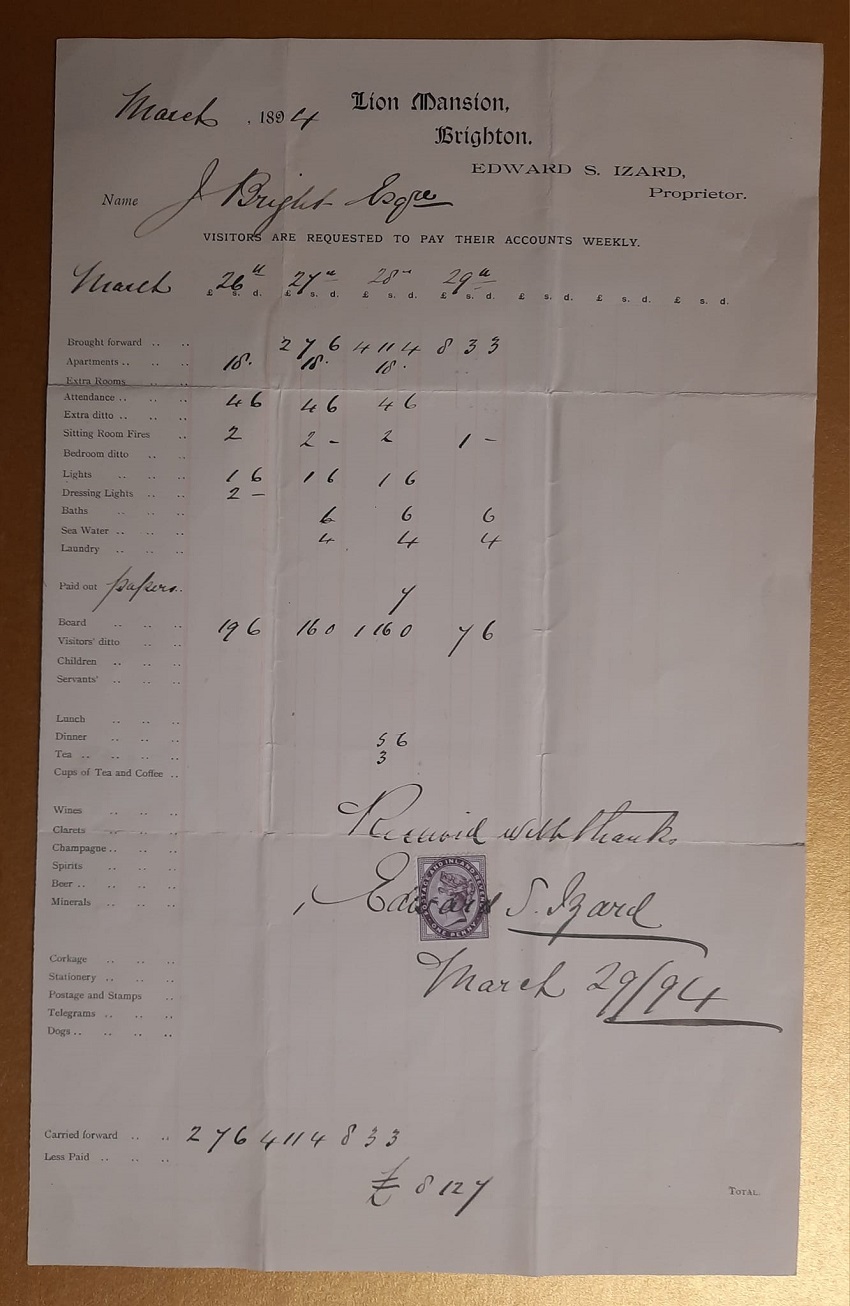 March , 1894 Lion Mansion,
Brighton.
EDWARD S. IZARD,
Proprietor.
Name J Bright Esqre
VISITORS ARE REQUESTED TO PAY THEIR ACCOUNTS WEEKLY.
March 26th 27th 28th 29th
£ s. d. £ s. d. £ s. d. £ s. d. £ s. d. £ s. d. £ s. d.
Brought forward .. .. 2 7 6 4 11 4 8 3 3
Apartments .. .. .. 18. 18. 18.
Extra Rooms .. ..
Attendance .. .. .. 4 6 4 6 4 6
Extra ditto .. .. ..
Sitting Room Fires .. 2 2 - 2 1 -
Bedroom ditto .. ..
Lights .. .. .. 1 6 1 6 1 6
Dressing Lights .. .. 2 -
Baths .. .. .. 6 6 6
Sea Water .. .. .. 4 4 4
Laundry .. .. ..
Paid out papers.. 7
Board .. .. .. 19 6 16 0 1 16 0 7 6
Visitors' ditto .. ..
Children .. .. ..
Servants' .. .. ..
Lunch .. .. ..
Dinner .. .. .. 5 6
Tea .. .. .. .. 3
Cups of Tea and Coffee ..
Wines .. .. ..
Clarets .. .. ..
Champagne .. .. ..
Spirits .. .. ..
Beer .. .. .. ..
Minerals .. .. ..
Received with thanks
POSTAGE AND INLAND REVENUE
ONE PENNY
Edward S. Izard
March 29/94
Corkage .. .. ..
Stationery .. .. ..
Postage and Stamps ..
Telegrams .. .. ..
Dogs .. .. .. ..
Carried forward .. .. 2 7 6 4 11 4 8 3 3
Less Paid .. .. ..
£ 8 12 7 TOTAL.